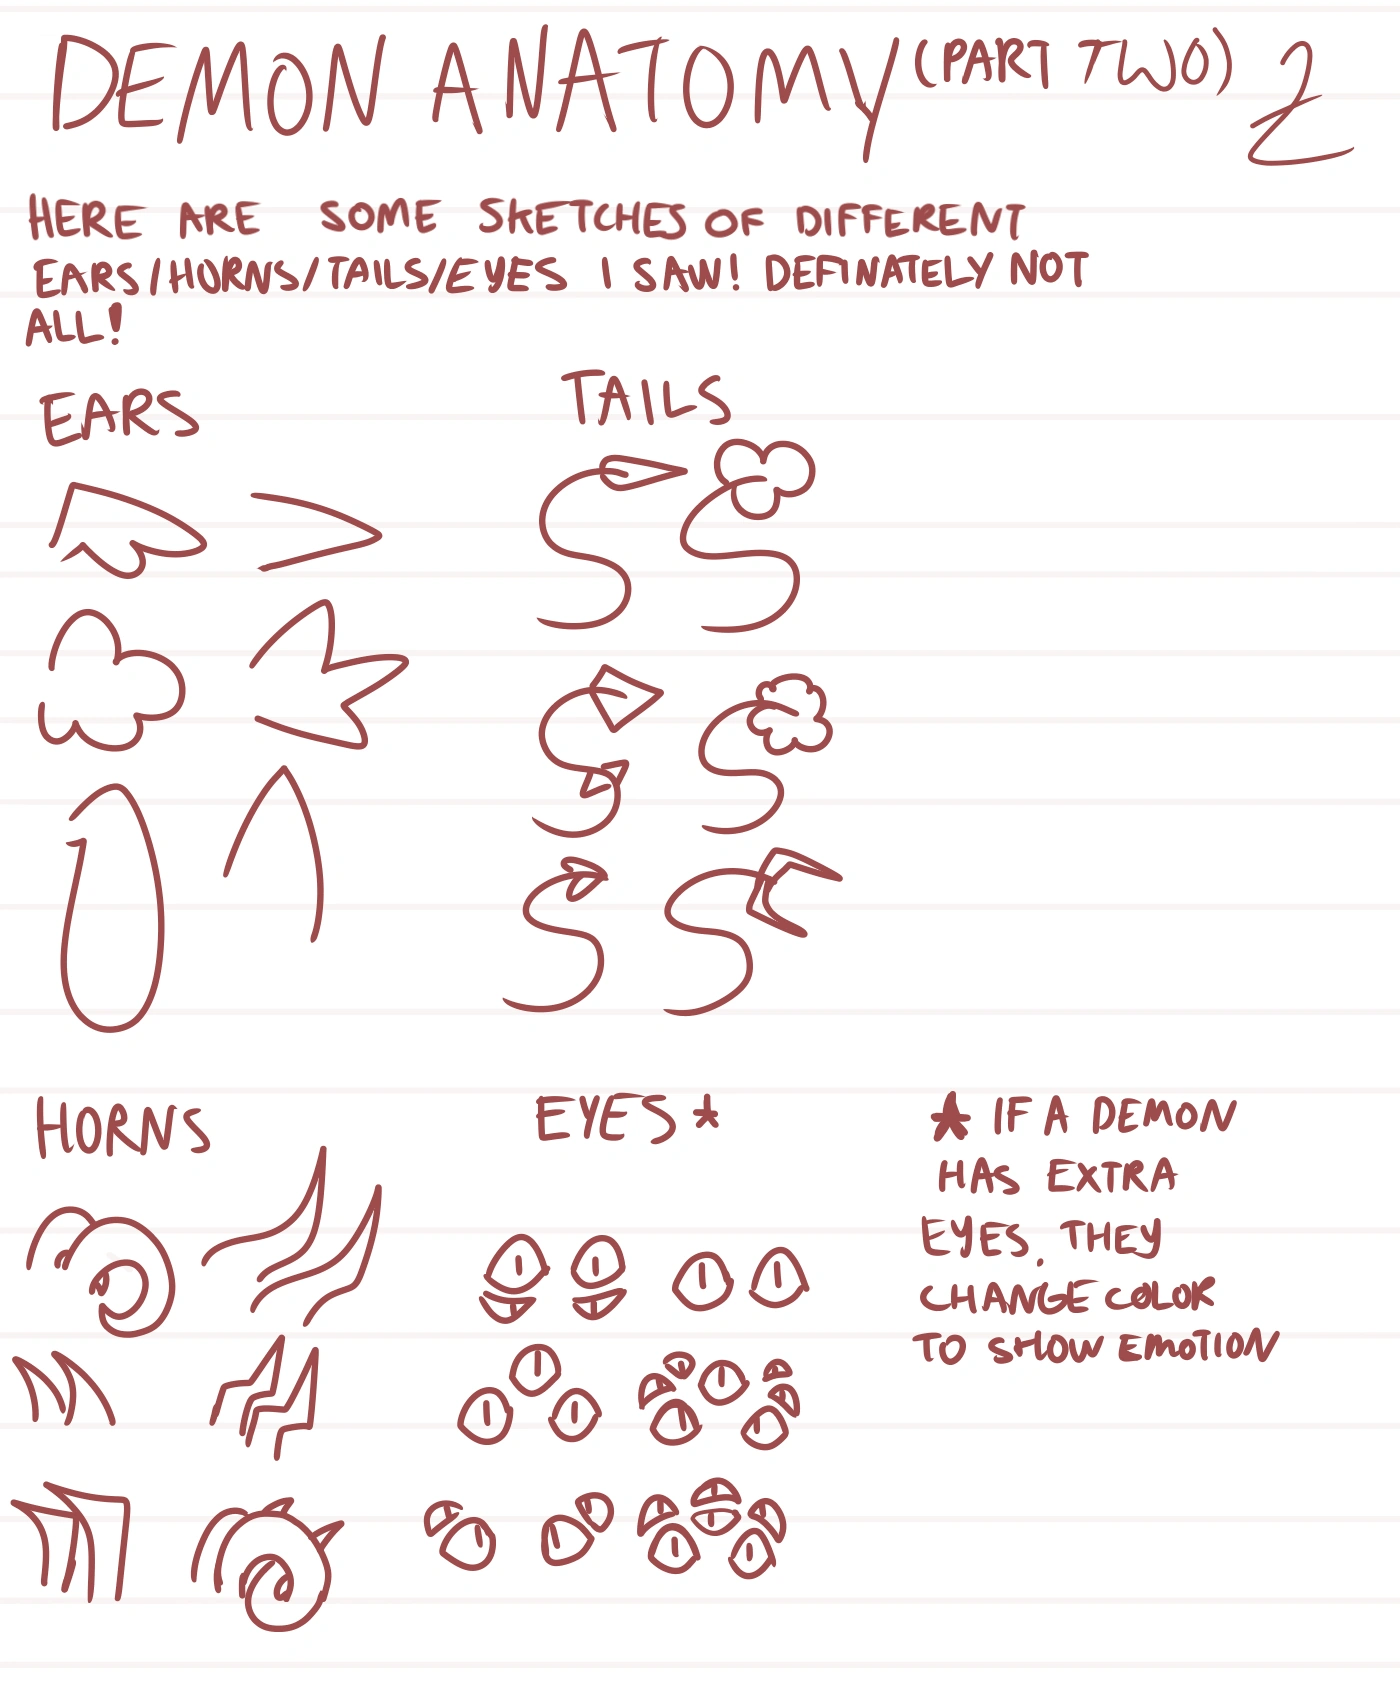 DEMON ANATOMY (PART TWO) 2
HERE ARE SOME SKETCHES OF DIFFERENT
EARS/HORNS/TAILS/EYES I SAW! DEFINATELY NOT
ALL!
EARS
TAILS
HORNS
EYES *
* IF A DEMON
HAS EXTRA
EYES, THEY
CHANGE COLOR
TO SHOW EMOTION